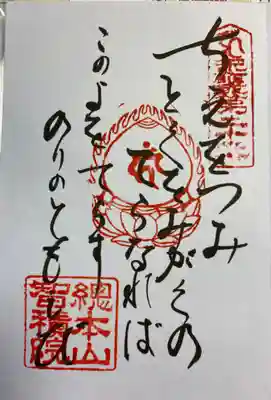 ちゑをつみ
とくをみがくの
てらなれば
このよをてらす
のりのともしび
總本山
智積院